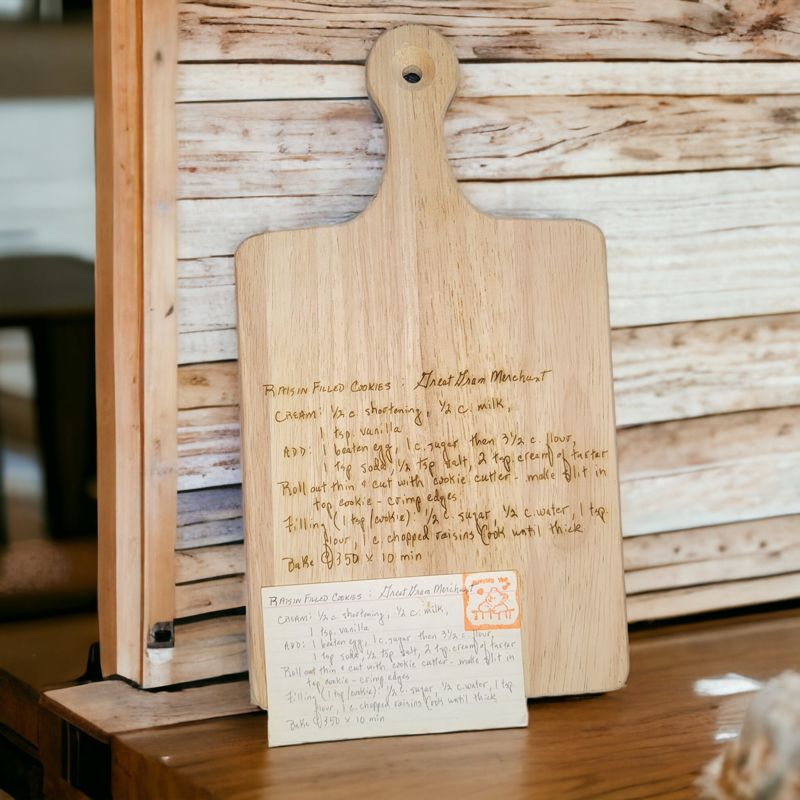 RAISIN FILLED COOKIES : Great Gram Merchant
CREAM: 1/2 c. shortening, 1/2 c. milk,
1 tsp. vanilla
ADD: 1 beaten egg, 1 c. sugar then 3 1/2 c. flour,
1 tsp soda, 1/2 tsp salt, 2 tsp. cream of tartar
Roll out thin & cut with cookie cutter - make slit in
top cookie - crimp edges
Filling (1 tsp/cookie): 1/2 c. sugar, 1/2 c. water, 1 tsp.
flour, 1 c. chopped raisins Cook until thick
Bake @ 350 x 10 min
RAISIN FILLED COOKIES : Great Gram Merchant
CREAM: 1/2 c shortening, 1/2 c. milk,
1 tsp. vanilla
ADD: 1 beaten egg, 1 c. sugar then 3 1/2 c. flour,
1 tsp soda, 1/2 tsp salt, 2 tsp. cream of tartar
Roll out thin & cut with cookie cutter - make slit in
top cookie - crimp edges
Filling (1 tsp/cookie): 1/2 c. sugar, 1/2 c. water, 1 tsp
flour, 1 c. chopped raisins Cook until thick
Bake @ 350 x 10 min